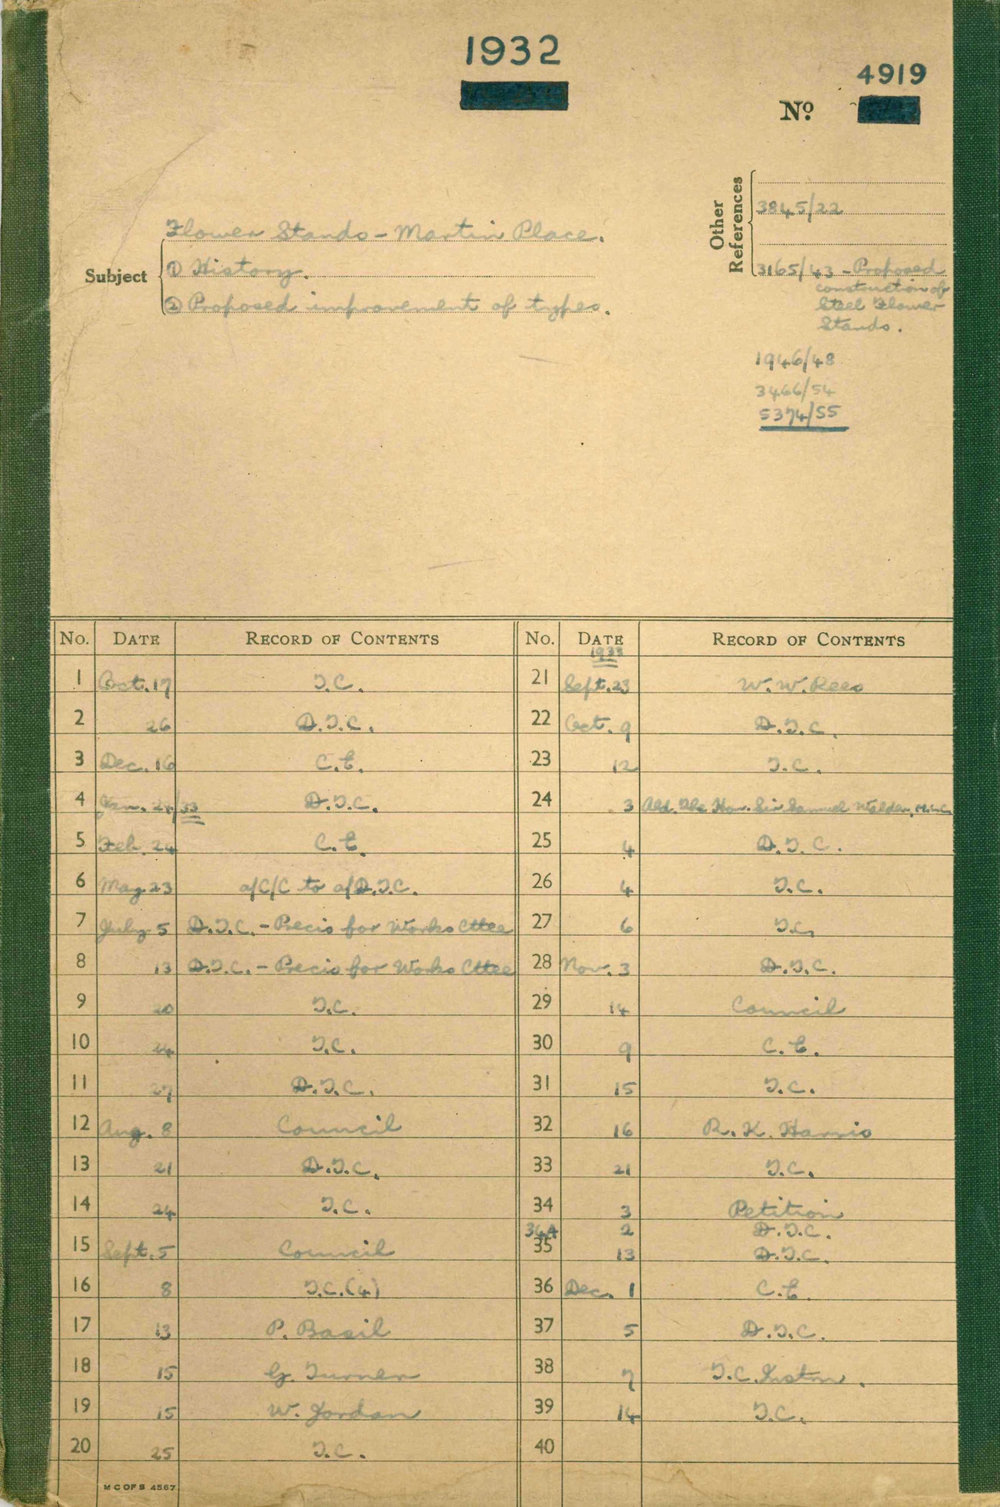 1932
4919
No.
Other References
3845/22
3165/43 - Proposed
construction of
Steel Flower
Stands.
1946/48
3466/54
5374/55
Subject
Flower Stands - Martin Place.
① History.
② Proposed improvement of types.
No. DATE RECORD OF CONTENTS
1 Oct. 17 T.C.
2 26 D.T.C.
3 Dec. 16 C.E.
4 Jan. 24/33 D.T.C.
5 Feb. 24 C.E.
6 May 23 a/C/C to a/D.T.C.
7 July 5 D.T.C. - Precis for Works Cttee
8 13 D.T.C. - Precis for Works Cttee
9 20 T.C.
10 24 T.C.
11 27 D.T.C.
12 Aug. 8 Council
13 21 D.T.C.
14 24 T.C.
15 Sept. 5 Council
16 8 T.C. (4)
17 13 P. Basil
18 15 G. Turner
19 15 W. Jordan
20 25 T.C.
No. DATE RECORD OF CONTENTS
1933
21 Sept. 23 W. W. Rees
22 Oct. 9 D.T.C.
23 12 T.C.
24 3 Ald. The Hon. Sir Samuel Walder, M.L.C.
25 4 D.T.C.
26 4 T.C.
27 6 T.C.
28 Nov. 3 D.T.C.
29 14 Council
30 9 C.E.
31 15 T.C.
32 16 R. K. Harris
33 21 T.C.
34 3 Petition
34A 2 D.T.C.
35 13 D.T.C.
36 Dec. 1 C.E.
37 5 D.T.C.
38 7 T.C.
39 14 T.C.
40
M C OF S 4567